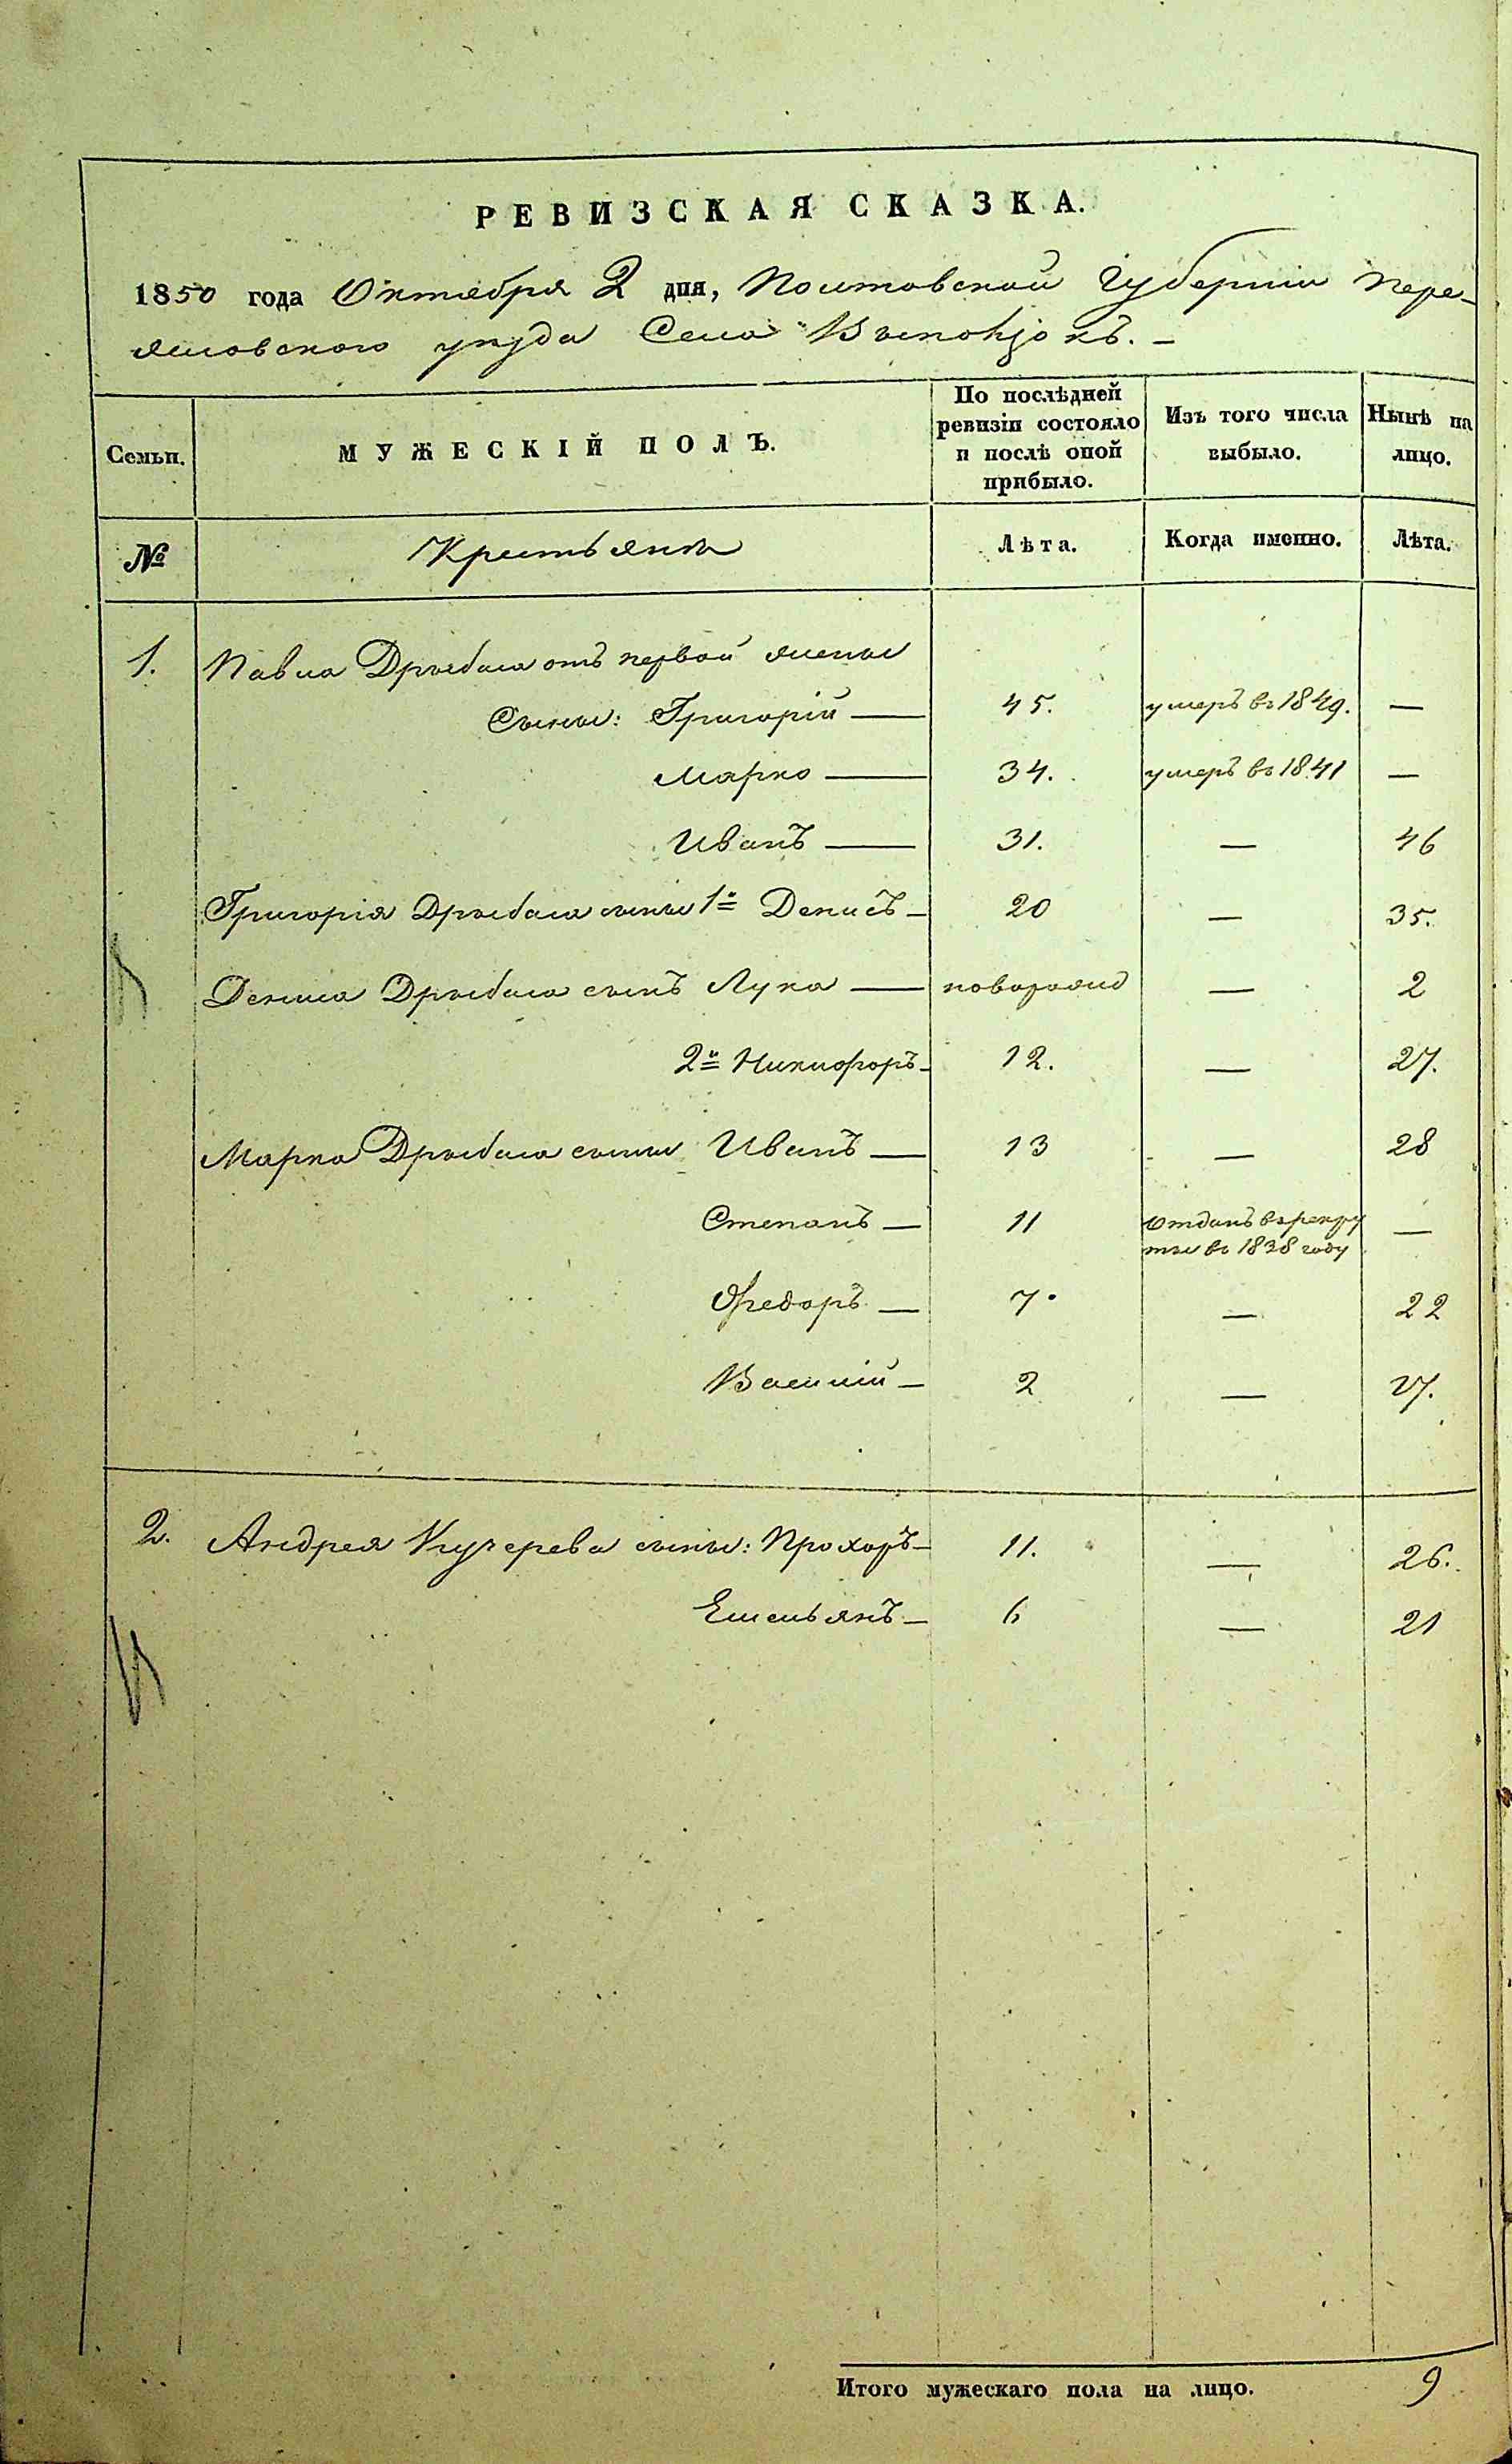 РЕВИЗСКАЯ СКАЗКА.
1850 года Октября 2 дня, Полтовской Губернии Пере-
яславского уезда Села Выповзокъ. —
Семьи. МУЖЕСКІЙ ПОЛЪ. По послѣдней ревизіи состояло и послѣ оной прибыло. Изъ того числа выбыло. Нынѣ на лицо.
№ Крестьяня Лѣта. Когда именно. Лѣта.
1. Павла Дрыбала отъ первой жены
Сыны: Григорій — 45. умеръ въ 1849. —
Марко — 34. умеръ въ 1841 —
Иванъ — 31. — 46
Григорія Дрыбала сыны 1й Денисъ — 20 — 35.
Дениса Дрыбала сынъ Лука — новорожд — 2
2й Никифоръ — 12. — 27.
Марка Дрыбала сыны Иванъ — 13 — 28
Степанъ — 11 Отданъ въ рекру
ты въ 1838 году —
Федоръ — 7. — 22
Василій — 2 — 17.
2. Андрея Кучерева сыны: Прохоръ — 11. — 26.
Емельянъ — 6 — 21
Итого мужескаго пола на лицо. 9